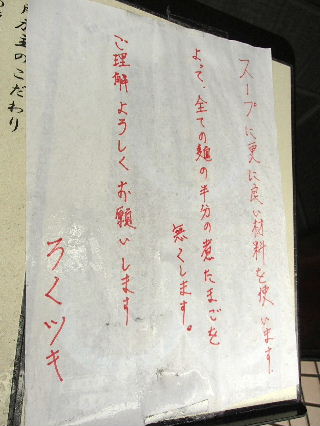 スープに更に良い材料を使います.
よって、全ての麺の半分の煮たまごを
無くします。
ご理解よろしくお願いします
ろくツキ
のこだわり